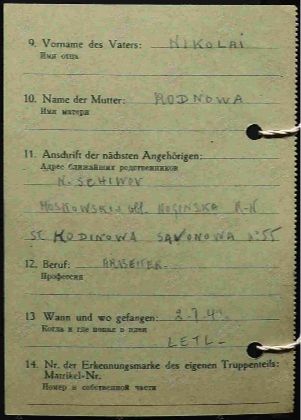 9. Vorname des Vaters: NIKOLAI
Имя отца
10. Name der Mutter: RODNOWA
Имя матери
11. Anschrift der nächsten Angehörigen:
Адрес ближайших родственников
N. SCHIWOV
MOSKOWSKIJ obl. NOGINSKA R-N
ST. KODINOWA SAVONOWA № 55
12. Beruf: ARBEITER
Профессия
13 Wann und wo gefangen: 2.9.41
Когда и где попал в плен
LETL-
14. Nr. der Erkennungsmarke des eigenen Truppenteils:
Matrikel-Nr.
Номер в собственной части